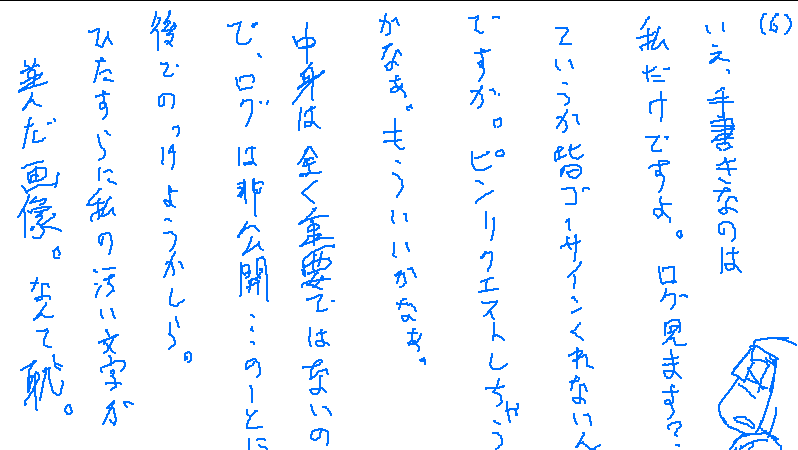 (6)
いえ、手書きなのは
私だけですよ。ログ見ます?
ていうか皆ゴーサインくれないん
ですが。ピンリクエストしちゃう
かなぁ。もういいかなぁ。
中身は全く重要ではないの
で、ログは非公開…のーとに
後でのっけようかしら。
ひたすらに私の汚い文字が
並んだ画像。なんて恥。